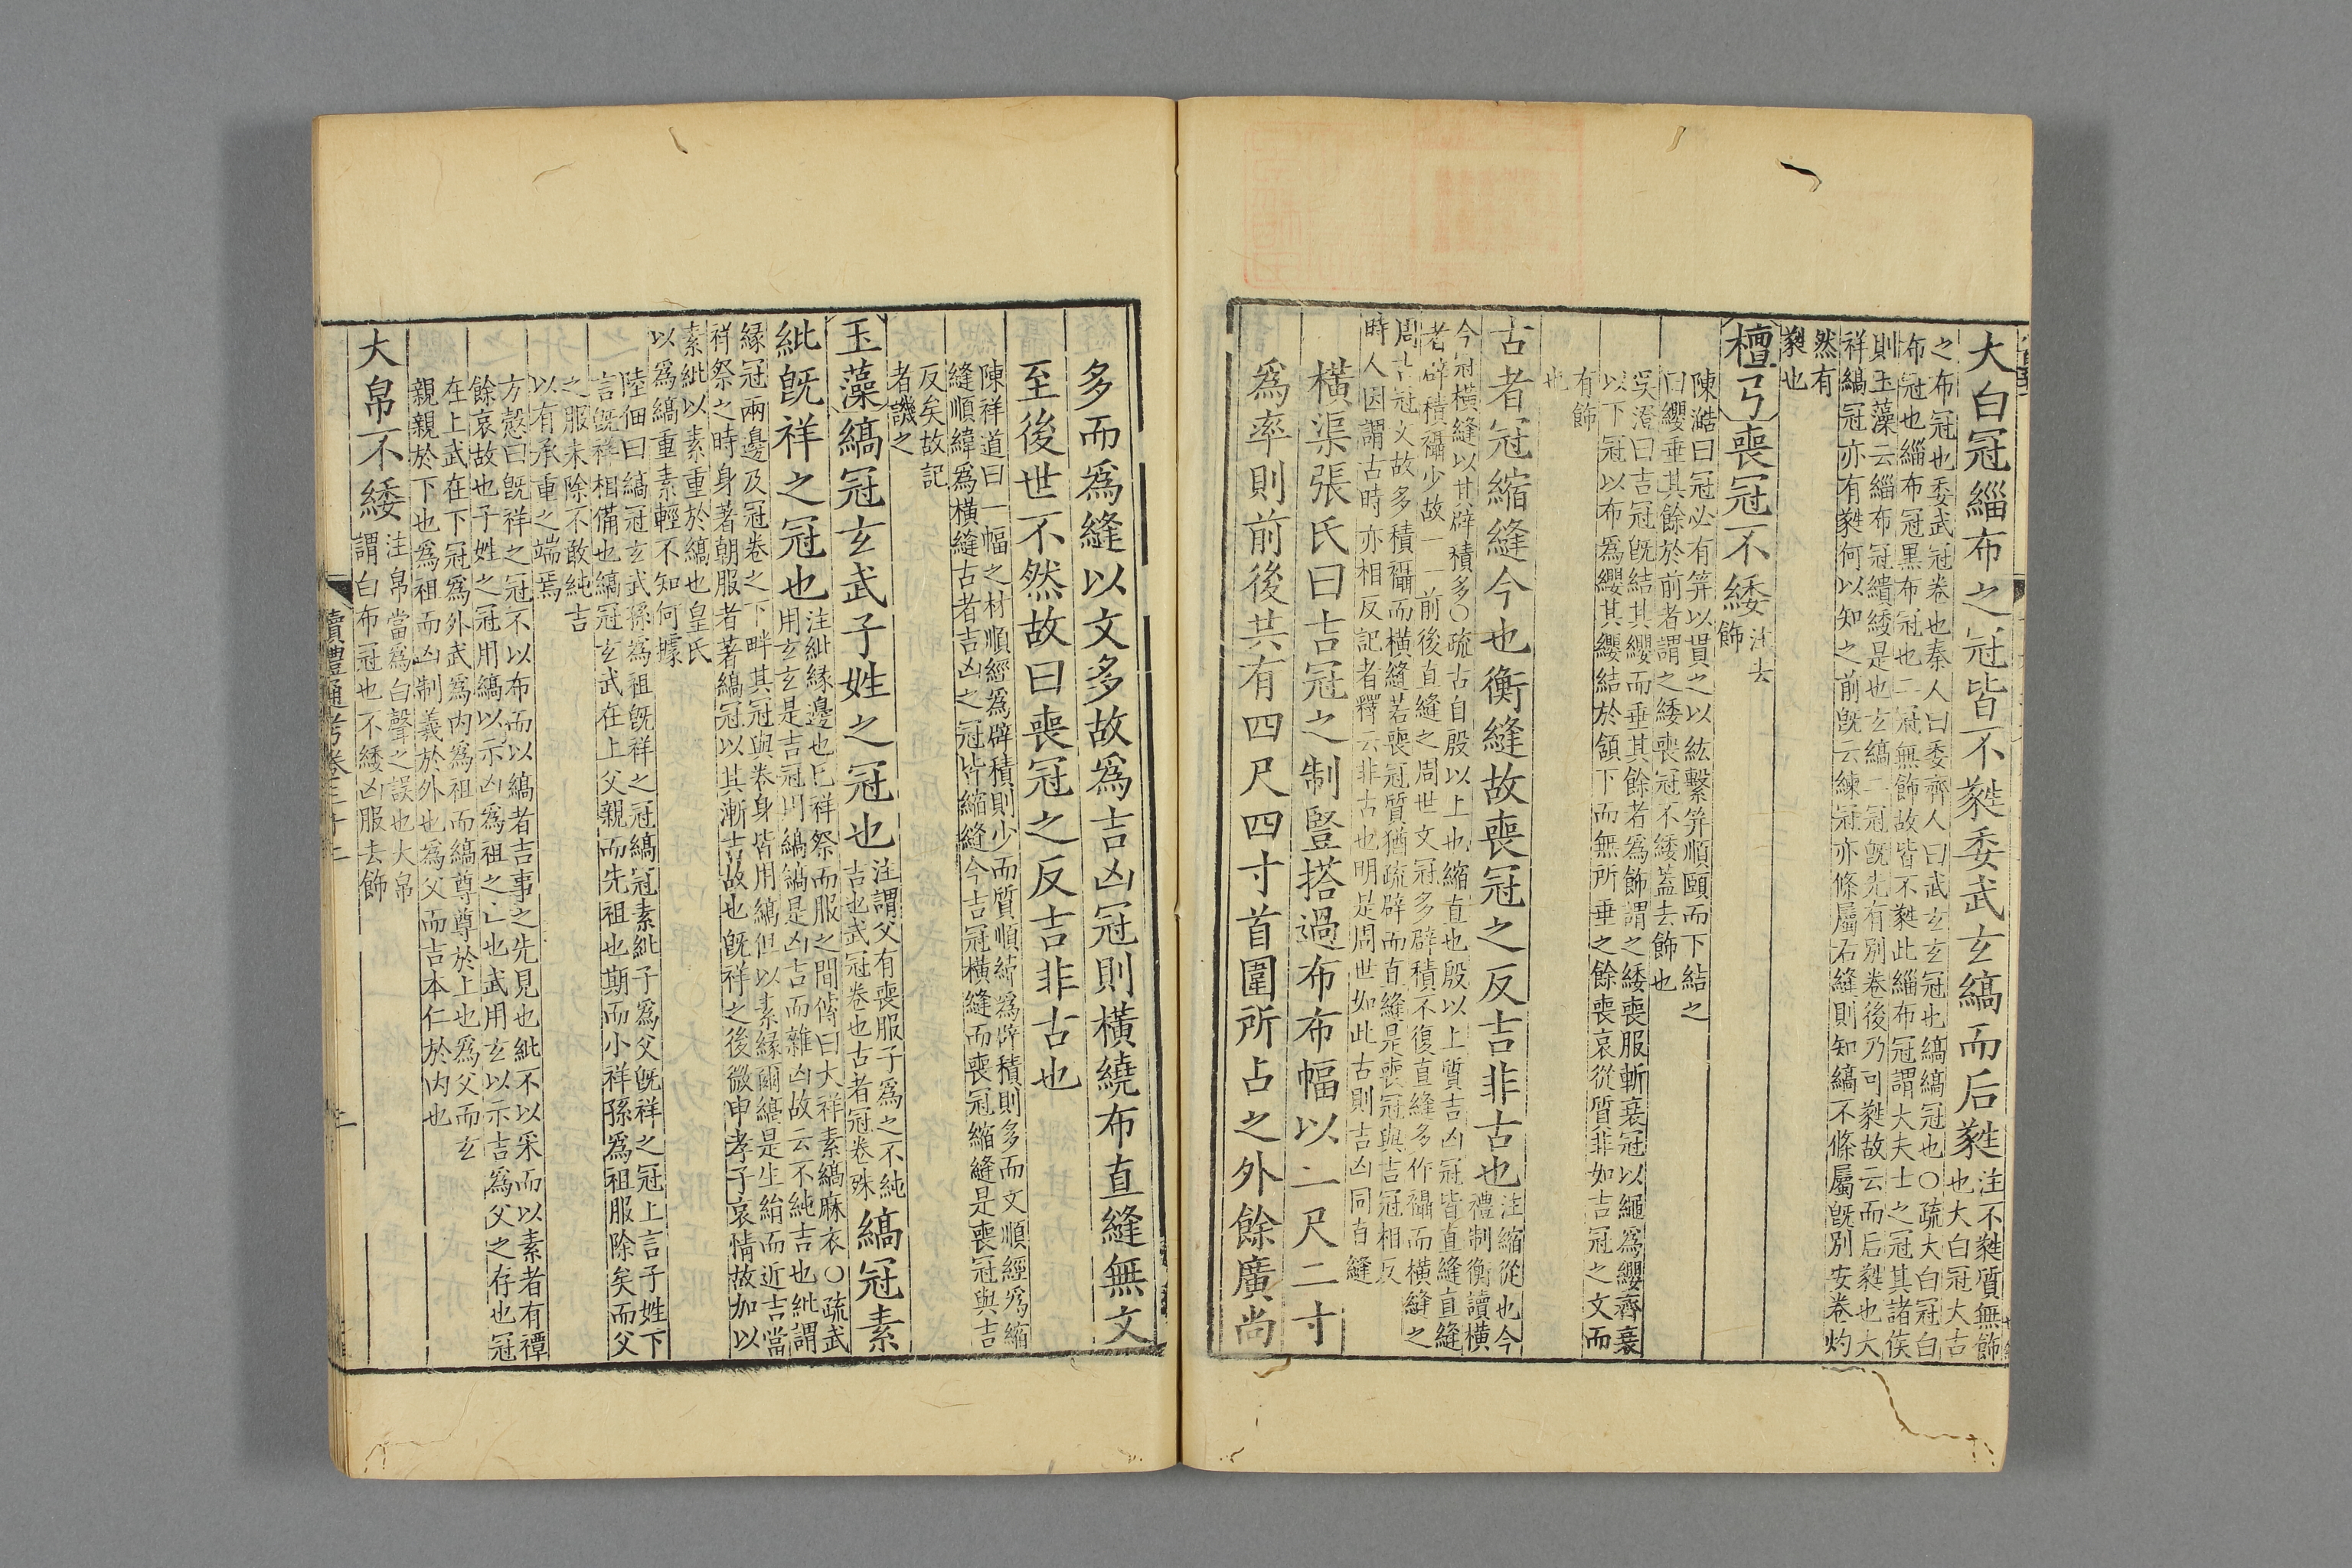 大白冠緇布之冠皆不蕤委武玄縞而后蕤
注不蕤質無飾
也大白冠大古
之布冠也委武冠卷也秦人曰委齊人曰武玄玄冠也縞縞冠也〇疏大白冠白
布冠也緇布冠黑布冠也二冠無飾故皆不蕤此緇布冠謂大夫士之冠其諸侯
則玉藻云緇布冠繢緌是也玄縞二冠旣先有別卷後乃可蕤故云而后蕤也大
祥縞冠亦有蕤何以知之前旣云練冠亦條屬右縫則知縞不條屬旣別安卷灼
然有
蕤也
檀弓喪冠不緌
注去
飾
陳澔曰冠必有筓以貫之以紘繫筓順頤而下結之
曰纓垂其餘於前者謂之緌喪冠不緌蓋去飾也
吳澄曰吉冠旣結其纓而垂其餘者爲飾謂之緌喪服斬衰冠以繩爲纓齊衰
以下冠以布爲纓其纓結於頷下而無所垂之餘喪哀從質非如吉冠之文而
有飾
也
古者冠縮縫今也衡縫故喪冠之反吉非古也
注縮從也今
禮制衡讀橫
今冠橫縫以其辟積多〇疏古自殷以上也縮直也殷以上質吉凶冠皆直縫直縫
者辟積襵少故一一前後直縫之周世文冠多辟積不復直縫多作襵而橫縫之
周吉冠文故多積襵而橫縫若喪冠質猶疏辟而直縫是喪冠與吉冠相反
時人因謂古時亦相反記者釋云非古也明是周世如此古則吉凶同直縫
橫渠張氏曰吉冠之制豎搭過布布幅以二尺二寸
爲率則前後共有四尺四寸首圍所占之外餘廣尚
多而爲縫以文多故爲吉凶冠則橫繞布直縫無文
至後世不然故曰喪冠之反吉非古也
陳祥道曰一幅之材順經爲辟積則少而質順緯爲辟積則多而文順經爲縮
縫順緯爲橫縫古者吉凶之冠皆縮縫今吉冠橫縫而喪冠縮縫是喪冠與吉
反矣故記
者譏之
玉藻縞冠玄武子姓之冠也
注謂父有喪服子爲之不純
吉也武冠卷也古者冠卷殊
縞冠素
紕旣祥之冠也
注紕緣邊也已祥祭而服之間傳曰大祥素縞麻衣〇疏武
用玄玄是吉冠用縞縞是凶吉而雜凶故云不純吉也紕謂
緣冠兩邊及冠卷之下畔其冠與卷身皆用縞但以素緣爾縞是生絹而近吉當
祥祭之時身著朝服者著縞冠以其漸吉故也旣祥之後微申孝子哀情故加以
素紕以素重於縞也皇氏
以爲縞重素輕不知何據
陸佃曰縞冠玄武孫爲祖旣祥之冠縞冠素紕子爲父旣祥之冠上言子姓下
言旣祥相備也縞冠玄武在上父親而先祖也期而小祥孫爲祖服除矣而父
之服未除不敢純吉
以有承重之端焉
方愨曰旣祥之冠不以布而以縞者吉事之先見也紕不以采而以素者有禫
餘哀故也子姓之冠用縞以示凶爲祖之亡也武用玄以示吉爲父之存也冠
在上武在下冠爲外武爲内爲祖而縞尊尊於上也爲父而玄
親親於下也爲祖而凶制義於外也爲父而吉本仁於内也
大帛不緌
注帛當爲白聲之誤也大帛
謂白布冠也不緌凶服去飾
讀禮通考卷三十二